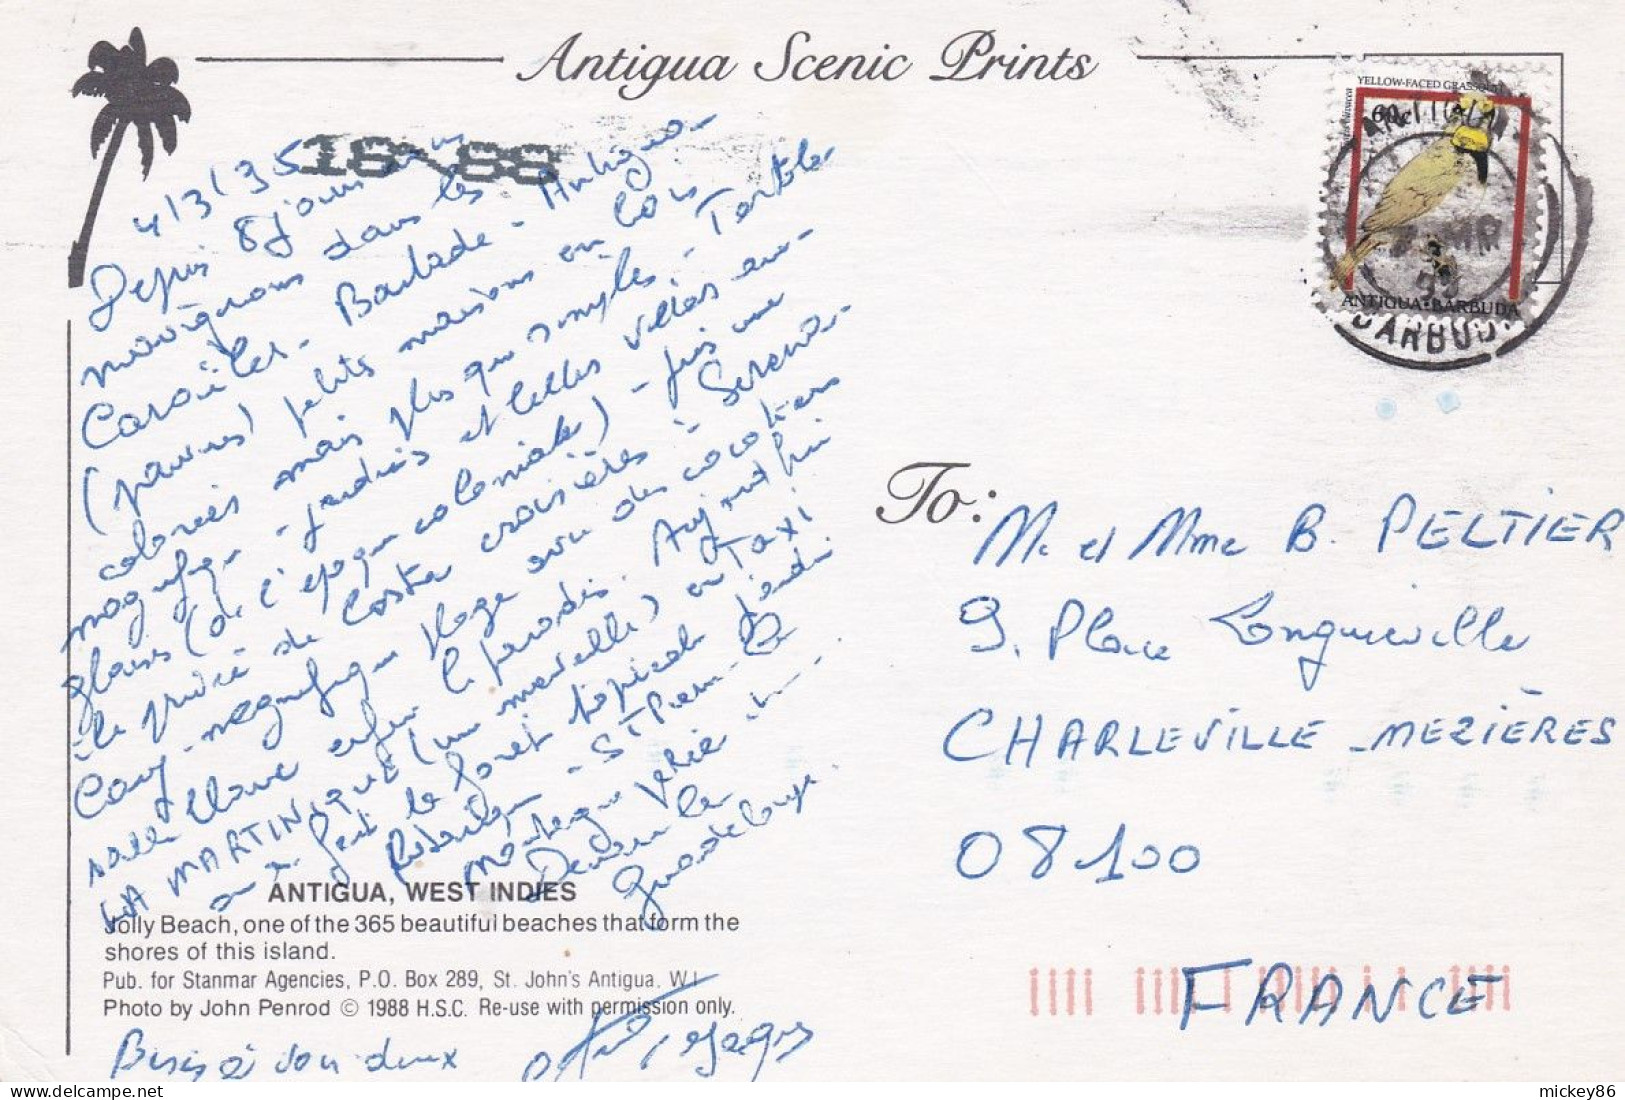 Antigua Scenic Prints
YELLOW-FACED GRASSQUIT
60¢
ANTIGUA
MR
ANTIGUA•BARBUDA
BARBUDA
16 88
4/3/95
Depuis 8 jours nous
naviguons dans les
Caraïbes - Barbade - Antigua -
(pauvres) petites maisons en bois
colorées mais plus que simples - Tortola
magnifique - jardins et belles villas an-
glaises (de l'époque coloniale) - puis une
île privée de Costa croisières : Serena-
Cay - magnifique plage avec des cocotiers
sable blanc enfin le paradis. Aujourd'hui
LA MARTINIQUE (une merveille) en Taxi
on a fait la forêt tropicale
St Pierre -
montagne
Demain la
Guadeloupe.
ANTIGUA, WEST INDIES
Jolly Beach, one of the 365 beautiful beaches that form the
shores of this island.
Pub. for Stanmar Agencies, P.O. Box 289, St. John's Antigua. W.I.
Photo by John Penrod © 1988 H.S.C. Re-use with permission only.
Bises à vous deux
Jacques
To:
M. et Mme B. PELTIER
9. Place Longueville
CHARLEVILLE-MEZIÈRES
08100
FRANCE
mickey86